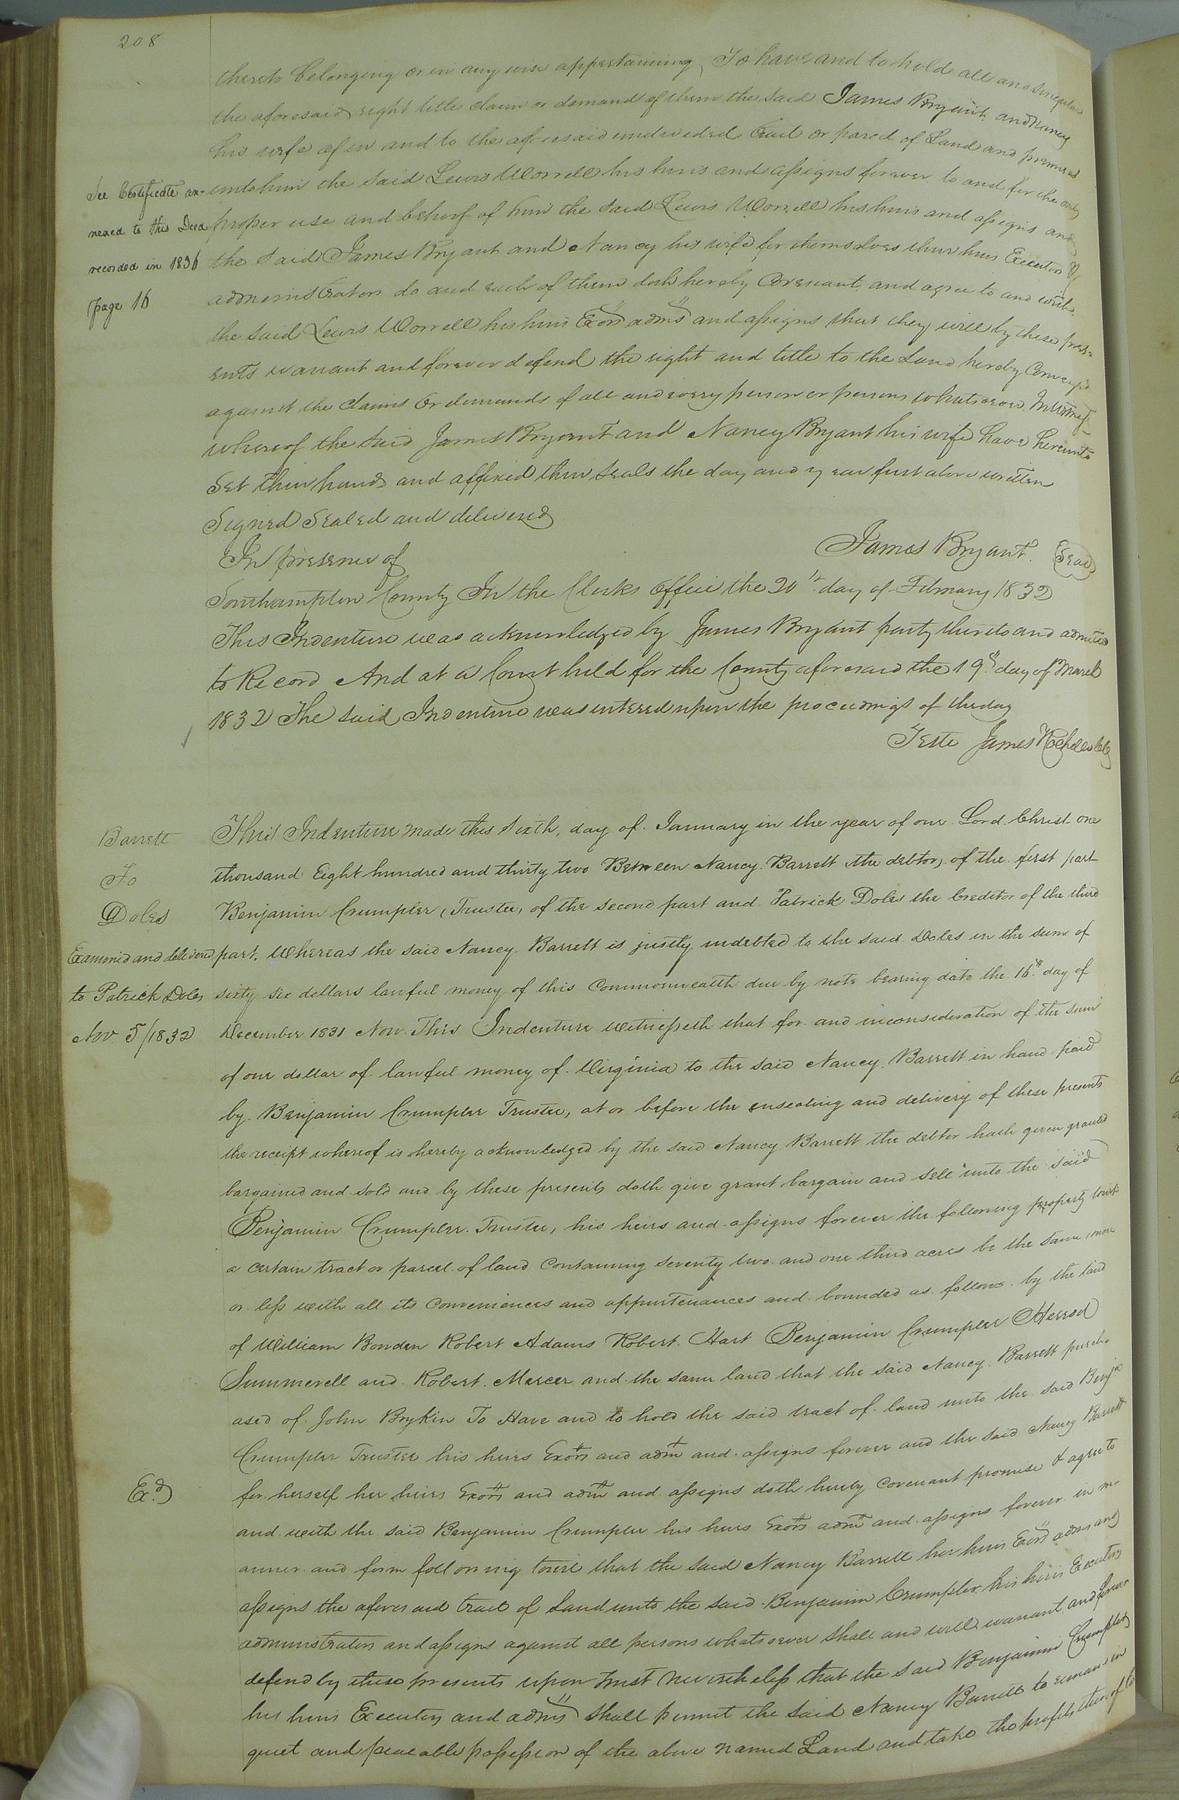 208
thereto belonging or in any wise appertaining, To have and to hold all and singular
the aforesaid right title claim or demand of them the said James Bryant and Nancy
his wife of in and to the aforesaid undivided tract or parcel of Land and premises
unto him the said Lewis Worrell his heirs and assigns forever to and for the only
proper use and behoof of him the said Lewis Worrell his heirs and assigns and
the said James Bryant and Nancy his wife for themselves their heirs Executors &
administrators do and each of them doth hereby Covenant and agree to and with
the said Lewis Worrell his heirs Exors adms and assigns that they will by these pres-
ents warrant and forever defend the right and title to the Land hereby Conveyed
against the claims or demands of all and every person or persons whatsoever In testimony
whereof the said James Bryant and Nancy Bryant his wife have hereunto
Set their hands and affixed their seals the day and year first above written
Signed Sealed and delivered
In presence of
James Bryant. Seal
Southampton County In the Clerks office the 20th day of February 1832
This Indenture was acknowledged by James Bryant party thereto and admitted
to Record And at a Court held for the County aforesaid the 19th day of March
1832 The said Indenture was entered upon the proceedings of the day
Teste James Rochelle clk
See Certificate an-
nexed to this Deed
recorded in 1836
page 16
Barrett
To
Doles
Examined and delivered
to Patrick Doles
Nov 5/1832
This Indenture made this Sixth, day of January in the year of our Lord Christ one
thousand Eight hundred and thirty two Between Nancy Barrett the debtor, of the first part
Benjamin Crumpler, Trustee, of the second part and Patrick Doles the Creditor of the third
part, Whereas the said Nancy Barrett is justly indebted to the said Doles in the sum of
sixty six dollars lawful money of this Commonwealth due by note bearing date the 16th day of
December 1831 Now This Indenture witnesseth that for and inconsideration of the sum
of one dollar of lawful money of Virginia to the said Nancy Barrett in hand paid
by Benjamin Crumpler Trustee, at or before the ensealing and delivery of these presents
the receipt whereof is hereby acknowledged by the said Nancy Barrett the debtor hath given granted
bargained and sold and by these presents doth give grant bargain and sell unto the said
Benjamin Crumpler Trustee, his heirs and assigns forever the following property towit
a certain tract or parcel of land Containing seventy two and one third acres be the same more
or less with all its Conveniences and appurtenances and bounded as follows by the land
of William Bowden Robert Adams Robert Hart Benjamin Crumpler Herrod
Summerell and Robert Mercer and the same land that the said Nancy Barrett purch-
ased of John Boykin To Have and to hold the said tract of land unto the said Benja
Crumpler Trustee his heirs Exors and adm and assigns forever and the said Nancy Barrett
for herself her heirs Exors and adm and assigns doth hereby covenant promise & agree to
and with the said Benjamin Crumpler his heirs Exors adm and assigns forever in m-
anner and form following towit that the said Nancy Barrett her heirs Exors adms and
assigns the aforesaid tract of Land unto the said Benjamin Crumpler his heirs Executors
administrators and assigns against all persons whatsoever shall and will warrant and forever
defend by these presents upon trust nevertheless that the said Benjamin Crumpler
his heirs Executors and adms shall permit the said Nancy Barrett to remain in
quiet and peaceable possession of the above named Land and take the profits thereof
Exd